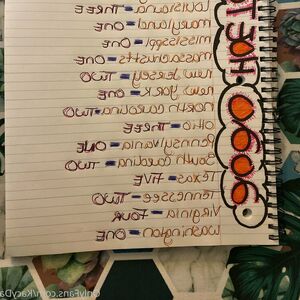 Louisiana - THREE
maryland - ONE
mississippi - ONE
massachusetts - ONE
new Jersey - TWO
new York - ONE
north carolina - TWO
Ohio - THREE
Pennsylvania - ONE
South Carolina - TWO
Texas - FIVE
Tennessee - TWO
Virginia - FOUR
Washington - ONE
nlyFans.com/KacyDa